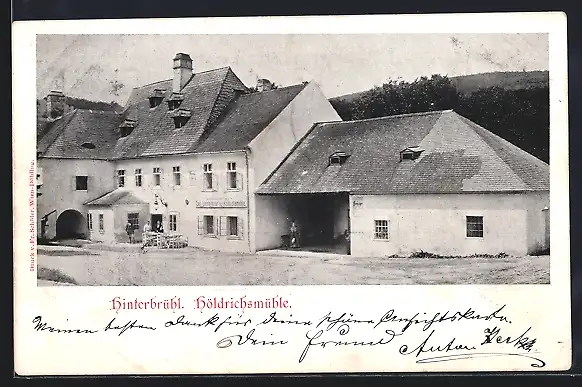 Druck v. Fr. Schöler, Wien-Döbling.
Hinterbrühl. Höldrichsmühle.
Meinen besten Dank für deine schöne Ansichtskarte.
Dein Freund Anton